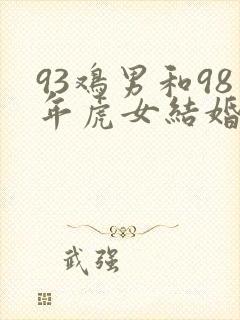 93鸡男和98
年虎女結婚
武强